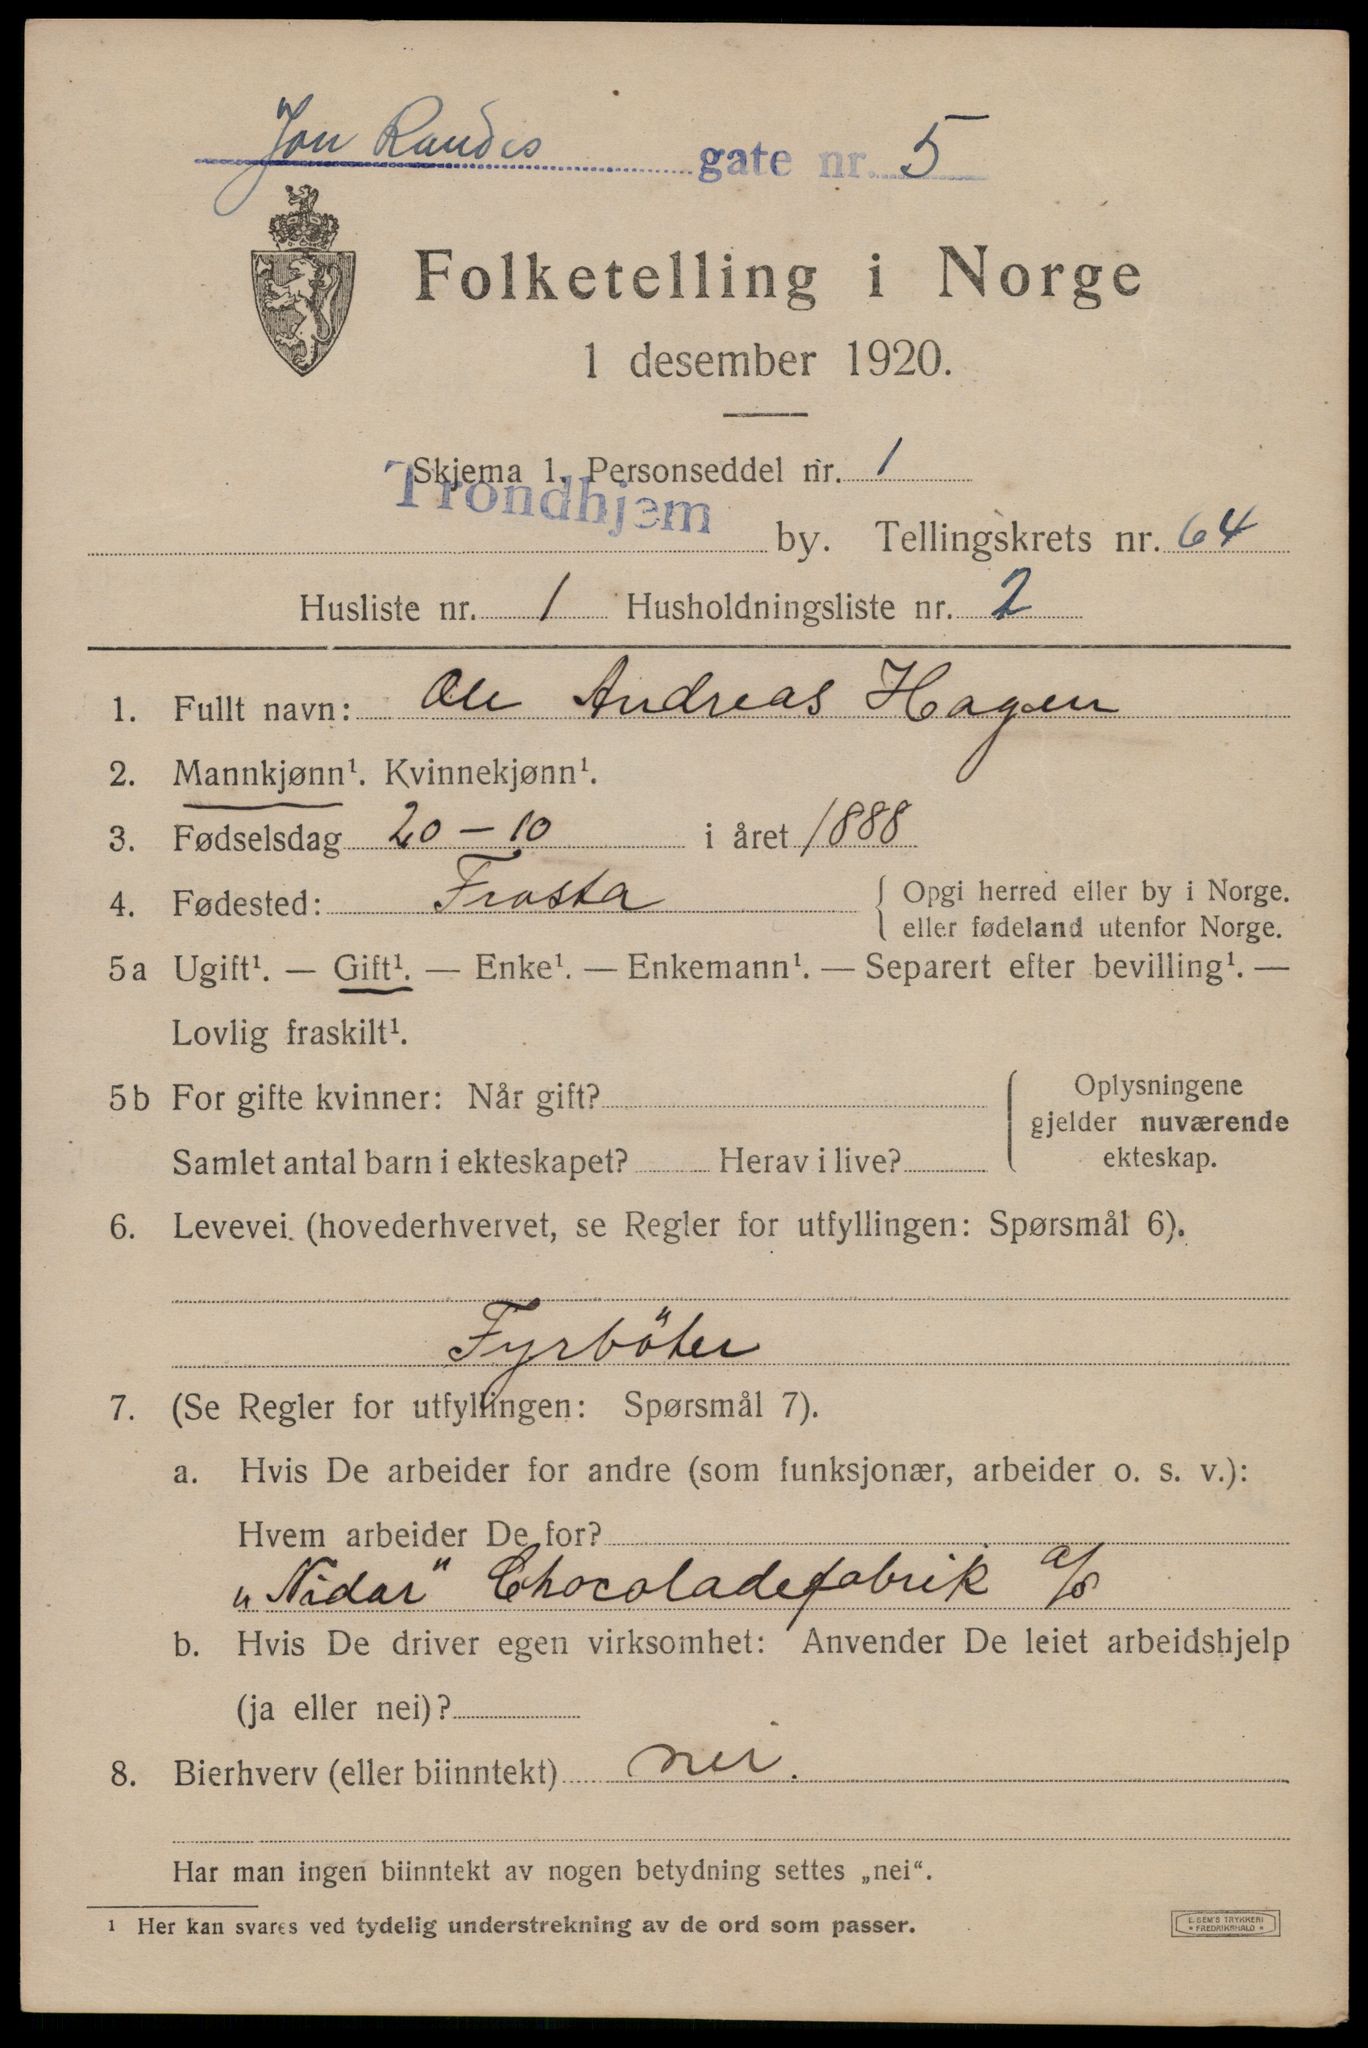 Jon Raudes gate nr. 5
Folketelling i Norge
1 desember 1920.
Skjema 1. Personseddel nr. 1
Trondhjem by. Tellingskrets nr. 64
Husliste nr. 1 Husholdningsliste nr. 2
1. Fullt navn: Ole Andreas Hagen
2. Mannkjønn¹. Kvinnekjønn¹.
3. Fødselsdag 20-10 i året 1888
4. Fødested: Frosta { Opgi herred eller by i Norge.
eller fødeland utenfor Norge.
5a Ugift¹. — Gift¹. — Enke¹. — Enkemann¹. — Separert efter bevilling¹. —
Lovlig fraskilt¹.
5b For gifte kvinner: Når gift? Oplysningene
gjelder nuværende
Samlet antal barn i ekteskapet? Herav i live? ekteskap.
6. Levevei (hovederhvervet, se Regler for utfyllingen: Spørsmål 6).
Fyrböter
7. (Se Regler for utfyllingen: Spørsmål 7).
a. Hvis De arbeider for andre (som funksjonær, arbeider o. s. v.):
Hvem arbeider De for?
„Nidar" Chocoladefabrik a/s
b. Hvis De driver egen virksomhet: Anvender De leiet arbeidshjelp
(ja eller nei)?
8. Bierhverv (eller biinntekt) nei.
Har man ingen biinntekt av nogen betydning settes „nei".
¹ Her kan svares ved tydelig understrekning av de ord som passer.
E. SEM'S TRYKKERI
* FREDRIKSHALD *